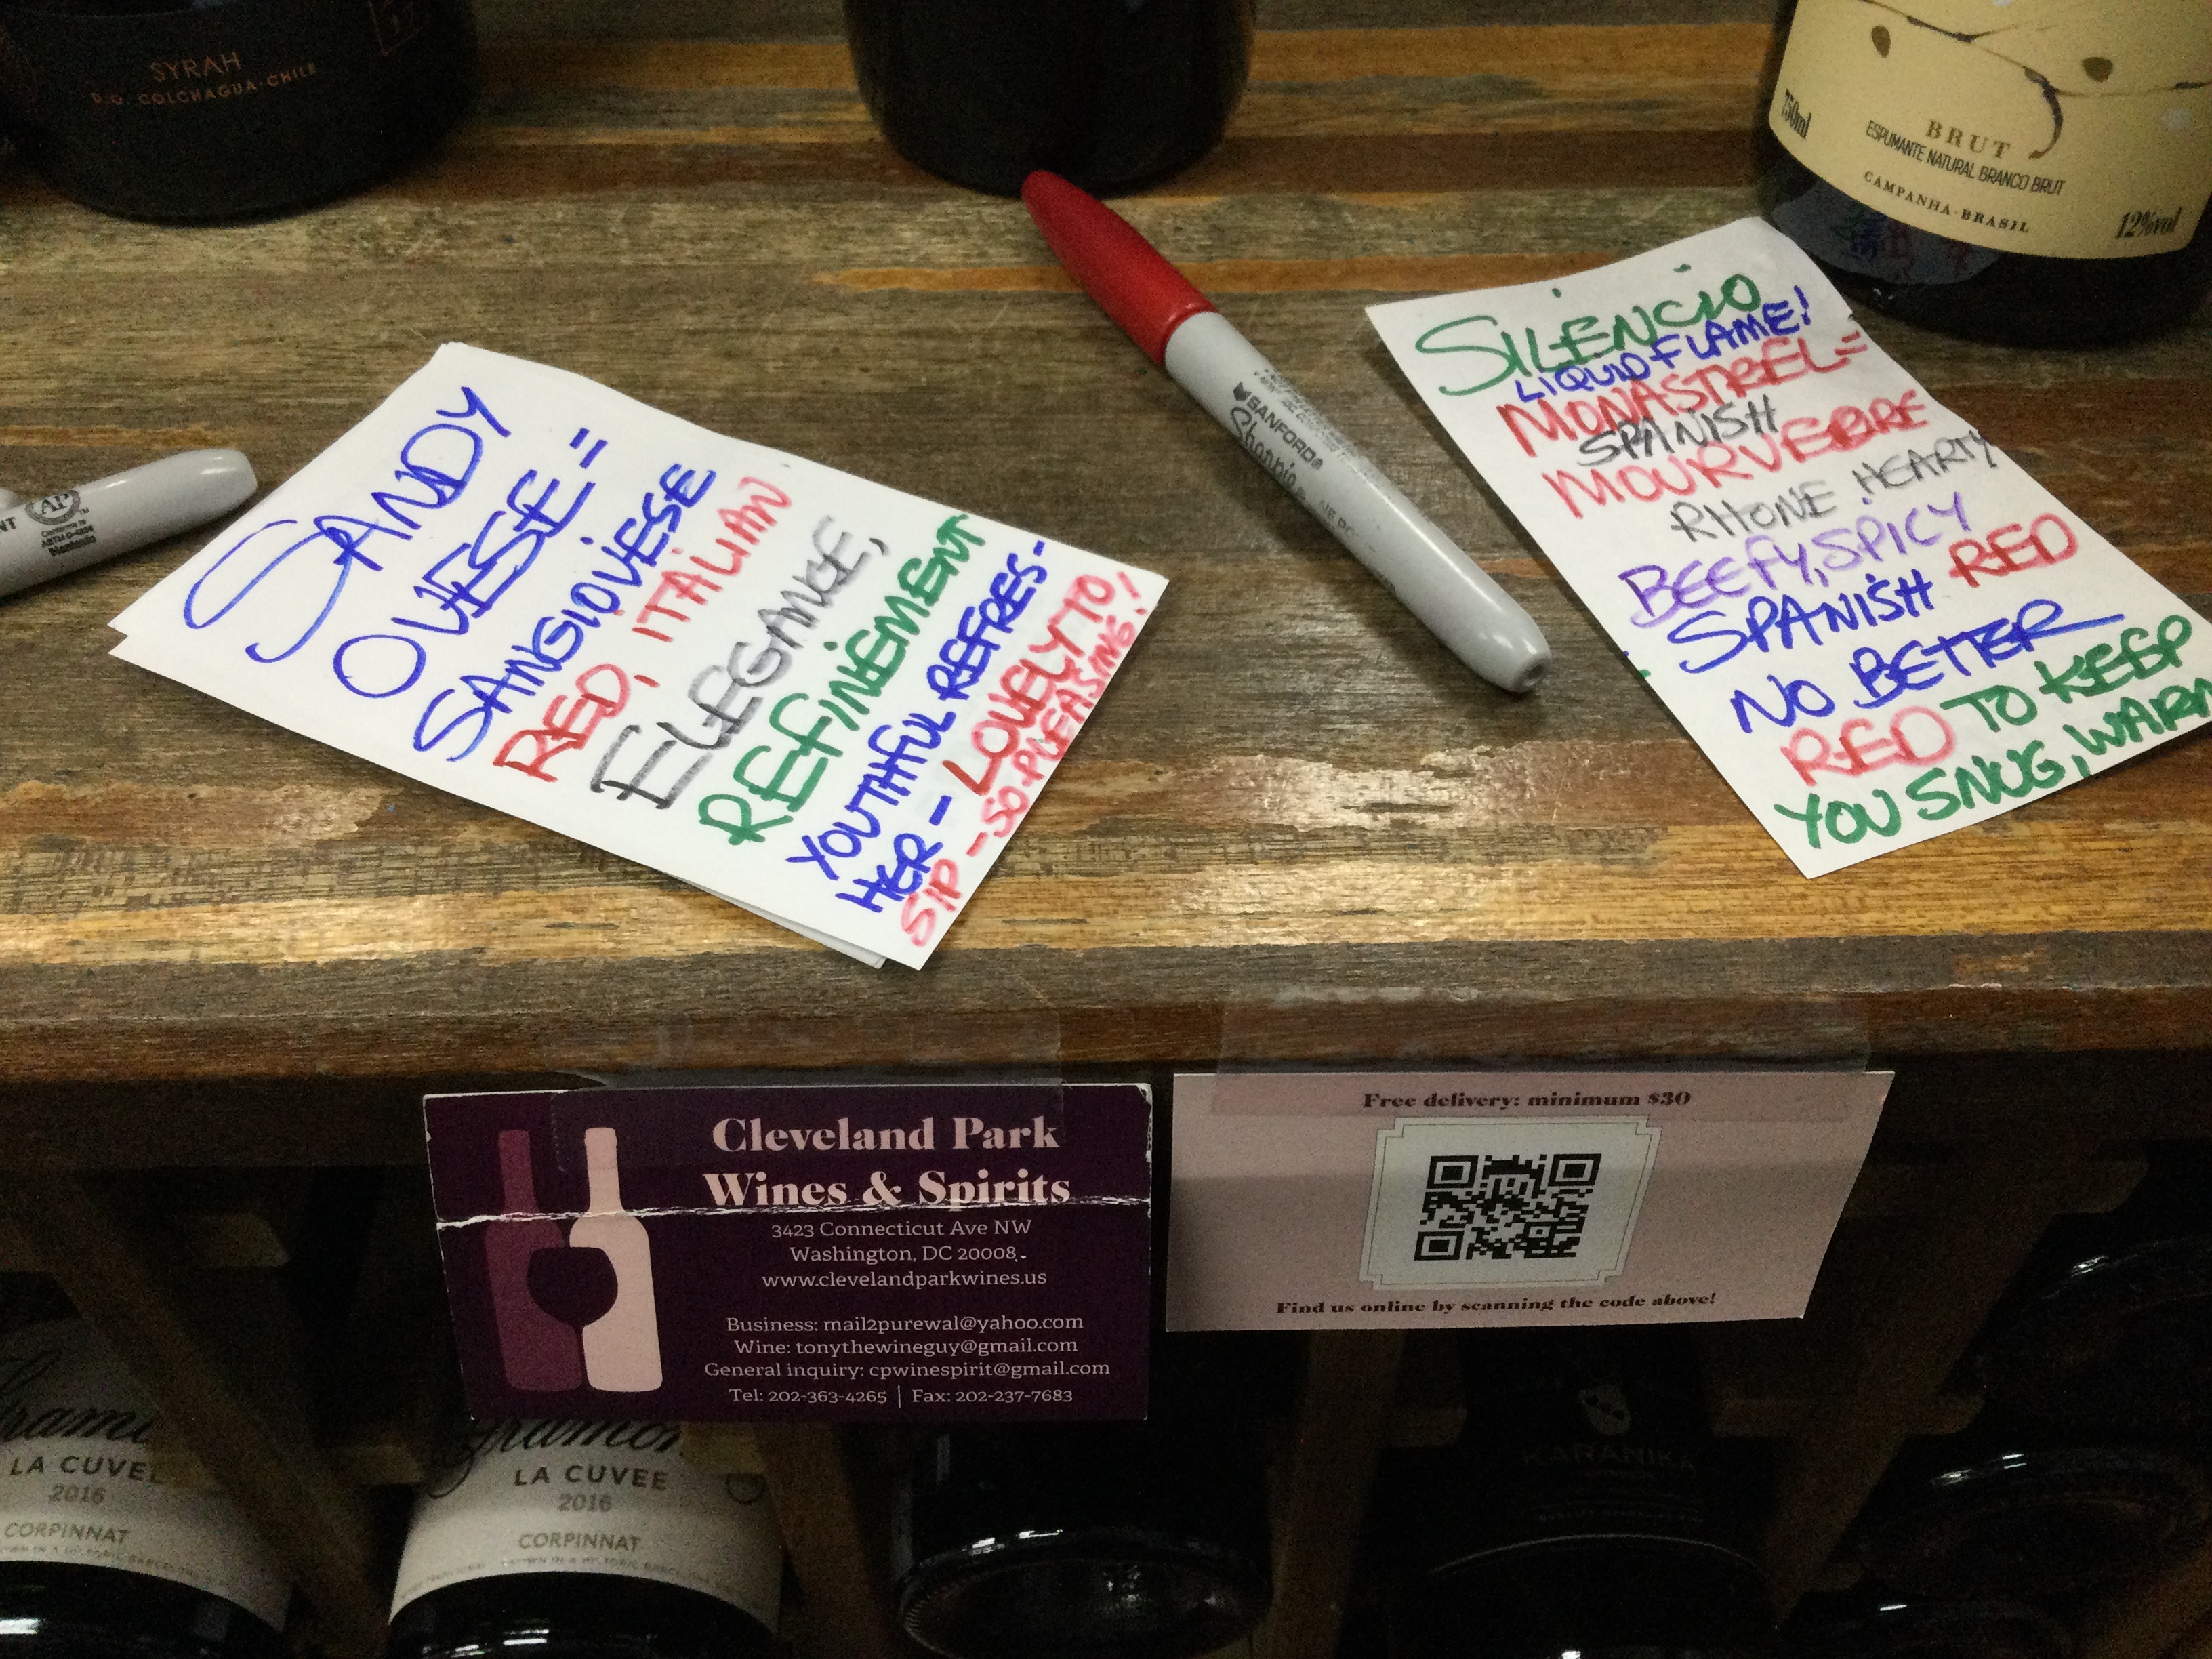 SYRAH
D.O. COLCHAGUA · CHILE
750ml
BRUT
ESPUMANTE NATURAL BRANCO BRUT
CAMPANHA · BRASIL
12%vol
AP
SANFORD®
Sharpie
SANDY
OVESE =
SANGIOVESE
RED, ITALIAN
ELEGANCE,
REFINEMENT
YOUTHFUL REFRES-
HER - LOVELY TO
SIP - SO PLEASING!
SILENCIO
LIQUID FLAME!
MONASTREL =
SPANISH
MOURVEBRE
RHONE HEARTY
BEEFY, SPICY
SPANISH RED
NO BETTER
RED TO KEEP
YOU SNUG, WARM
Cleveland Park
Wines & Spirits
3423 Connecticut Ave NW
Washington, DC 20008
www.clevelandparkwines.us
Business: mail2purewal@yahoo.com
Wine: tonythewineguy@gmail.com
General inquiry: cpwinespirit@gmail.com
Tel: 202-363-4265 | Fax: 202-237-7683
Free delivery: minimum $30
Find us online by scanning the code above!
LA CUVEE
2016
CORPINNAT
LA CUVEE
2016
CORPINNAT
KARANIKA